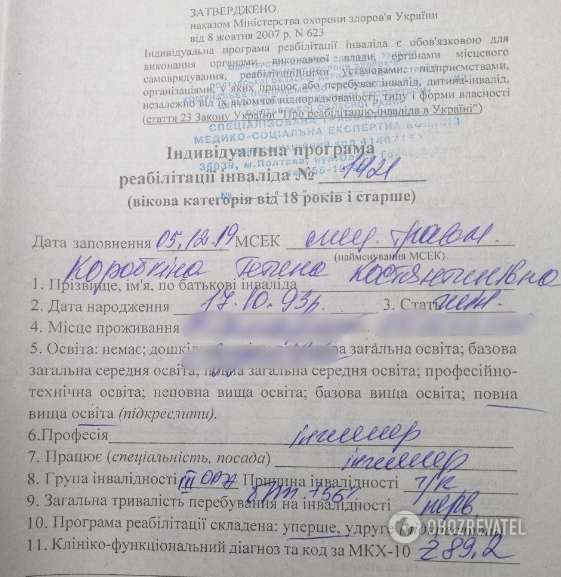 ЗАТВЕРДЖЕНО
наказом Міністерства охорони здоров'я України
від 8 жовтня 2007 р. N 623
Індивідуальна програма реабілітації інваліда є обов'язковою для
виконання органами виконавчої влади, органами місцевого
самоврядування, реабілітаційними установами, підприємствами,
організаціями, у яких працює або перебуває інвалід, дитина-інвалід,
незалежно від їх відомчої підпорядкованості, типу і форми власності
(стаття 23 Закону України "Про реабілітацію інвалідів в Україні")
СПЕЦІАЛІЗОВАНА
МЕДИКО-СОЦІАЛЬНА ЕКСПЕРТНА КОМІСІЯ
Індивідуальна програма
36039, м.Полтава,
реабілітації інваліда № 1421
(вікова категорія від 18 років і старше)
Дата заповнення 05.12.19 МСЕК спец. травм.
(найменування МСЕК)
Коробкіна Тетяна Костянтинівна
1. Прізвище, ім'я, по батькові інваліда
2. Дата народження 17.10.93р. 3. Стать жін.
4. Місце проживання
5. Освіта: немає; загальна освіта; базова
загальна середня освіта; повна загальна середня освіта; професійно-
технічна освіта; неповна вища освіта; базова вища освіта; повна
вища освіта (підкреслити).
6.Професія інженер
7. Працює (спеціальність, посада) інженер
8. Група інвалідності III ОРА Причина інвалідності т/к
9. Загальна тривалість перебування на інвалідності перв
10. Програма реабілітації складена: уперше, удруге
OBOZREVATEL
11. Клініко-функціональний діагноз та код за МКХ-10 Z 89.2